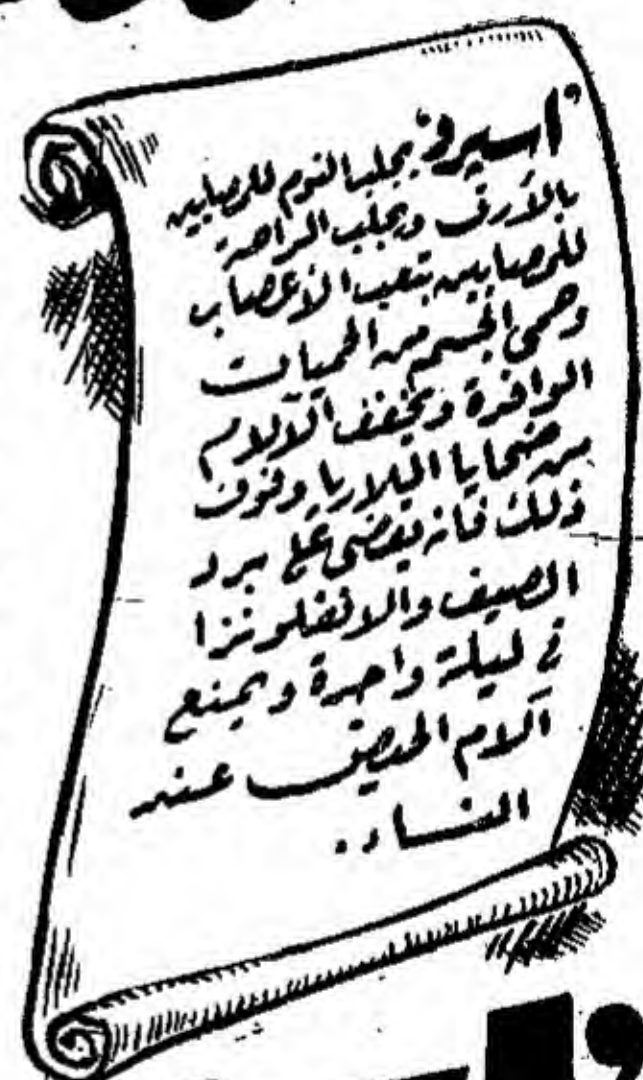 "اسبرو" يجلب النوم للمصابين
بالأرق ويجلب الراحة
للمصابين بتعب الأعصاب
وحمى الجسم من الحميات
الوافدة ويخفف الآلام
من ضحايا الملاريا وفوق
ذلك فانه يقضي على برد
الصيف والانفلونزا
في ليلة واحدة ويمنع
آلام الحيض عند
النساء.